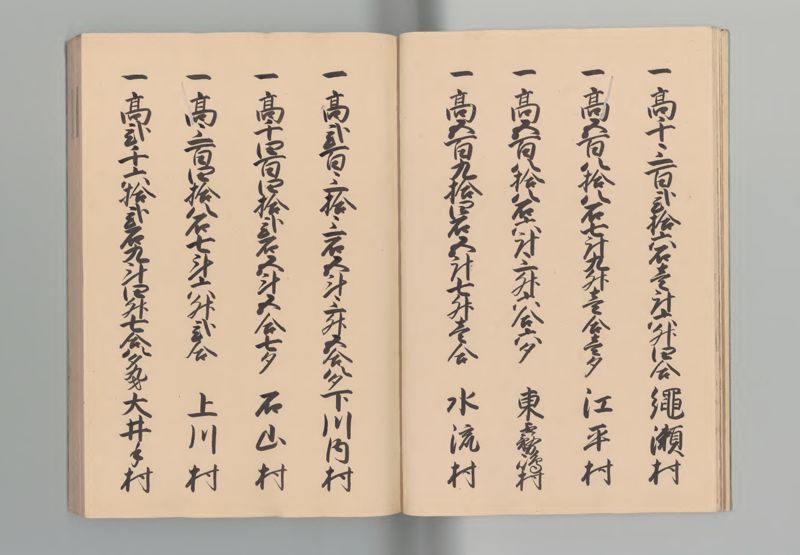 一 高千三百弐拾六石壱斗六升四合 縄瀬村
一 高五百八拾八石七斗九升壱合壱夕 江平村
一 高五百八拾八石六斗三升六合六夕 東霧嶋村
一 高五百九拾四石五斗七升壱合 水流村
一 高弐百三拾三石五斗三升五合八夕 下川内村
一 高千四百四拾弐石五斗五合七夕 石山村
一 高三百四拾八石七斗六升弐合 上川村
一 高弐千六拾弐石九斗四升七合八夕 大井手村